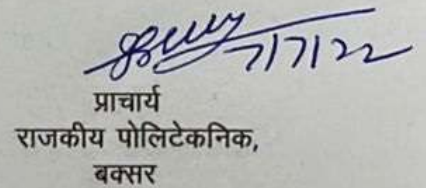 7/7/22
प्राचार्य
राजकीय पोलिटेकनिक,
बक्सर